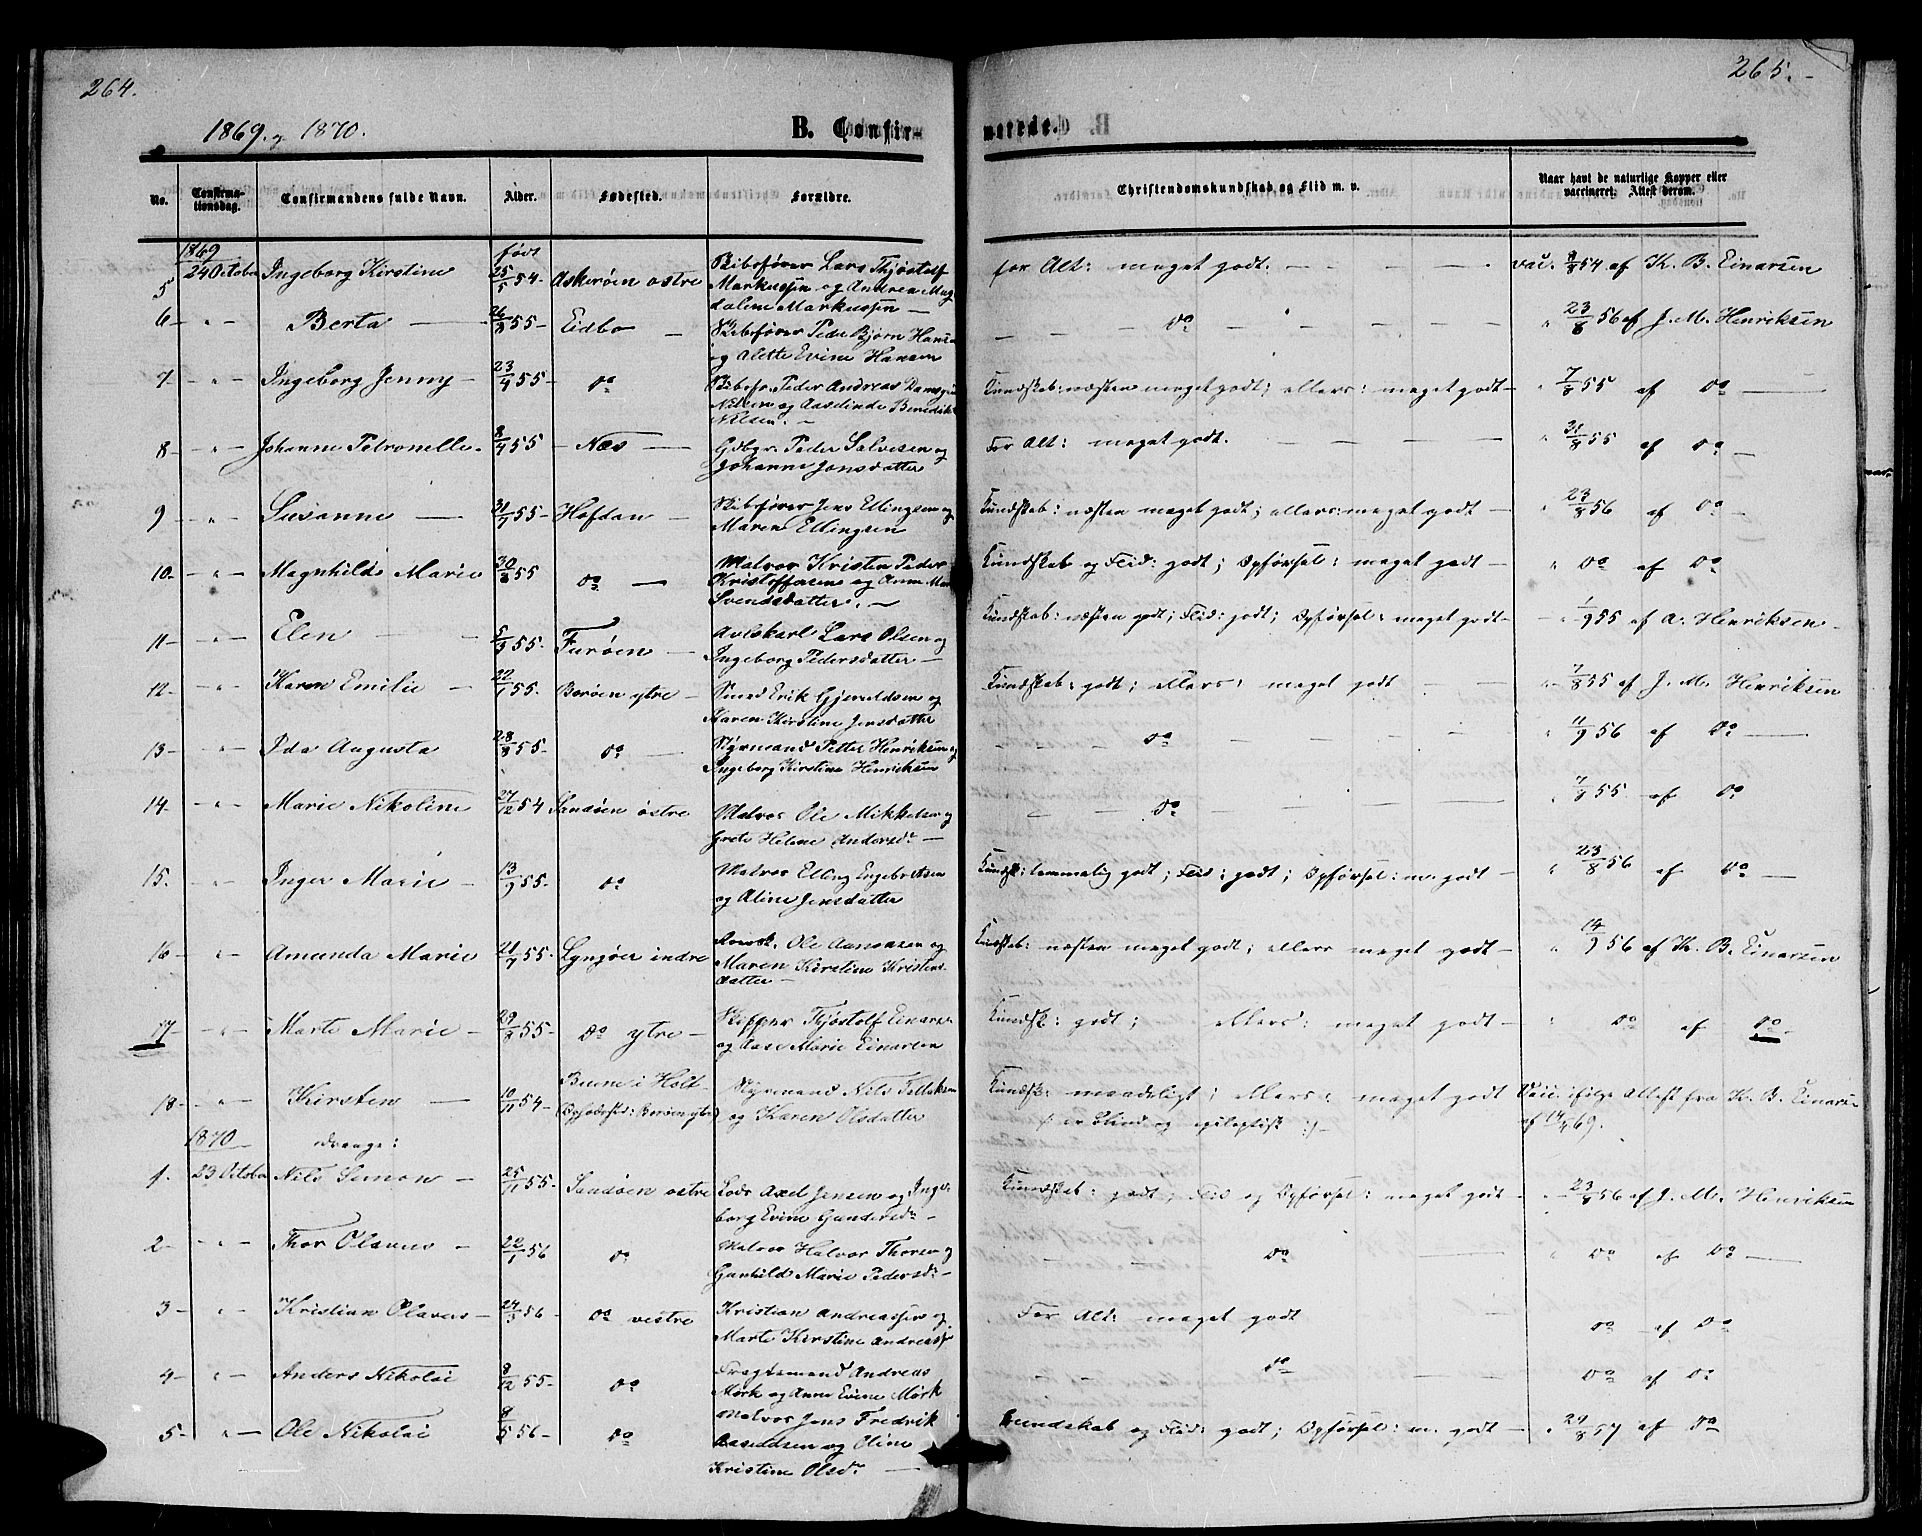 264.
265.
1869. og 1870.
B. Confir-
merede.
No.
Confirma-
tionsdag.
Confirmandens fulde Navn.
Alder.
Fødested.
Forældre.
Christendomskundskab og Flid m. v.
Naar havt de naturlige Kopper eller
vaccineret; Attest derom.
1869
født
5 24 October Ingeborg Kirstine 25/5 54. Askerøen østre Skibsfører Lars Thjøstolf
Markussen og Andrea Mag-
dalene Markussen
for Alt: meget godt. vac. 8/8 54 af K. B. Einarsen
6 - " - Berta 26/3 55 Eidbo Skibsfører Peder Bjørn Hansen
og Alette Evine Hansen
do " 23/8 56 af J. M. Henriksen
7 - " - Ingeborg Jenny 23/4 55 do Skibsf. Peder Andreas
Nilsen og Aaselinde Benedikte
Nilsen.
Kundskab: næsten meget godt; ellers: meget godt " 7/8 55 af do
8 - " - Johanne Petronelle 8/4 55 Næs Gdbgr. Peder Salvesen og
Johanne Jonsdatter
For Alt: meget godt. " 31/8 55 af do
9 - " - Susanne 31/7 55 Hofdan Skibsfører Jens Ellingsen og
Maren Ellingsen
Kundskab: næsten meget godt; ellers: meget godt " 23/8 56 af do
10 - " - Magnhilde Marie 30/8 55 do Matros Kristen Peder
Kristoffersen og Anne
Svendsdatter.
Kundskab og Flid: godt; Opførsel: meget godt " do af do
11 - " - Elen 5/3 55. Furøen Avlskarl Lars Olsen og
Ingeborg Pedersdatter
Kundskab: næsten godt; Flid: godt; Opførsel: meget godt " 1/9 55 af A. Henriksen
12 - " - Karen Emilie 22/1 55. Borøen ytre Smed Erik Gjeruldsen og
Karen Kirstine Jensdatter
Kundskab: godt; ellers: meget godt " 7/8 55 af J. M. Henriksen
13 - " - Ida Augusta 28/8 55. do Styrmand Petter Henriksen og
Ingeborg Kirstine Henriksen
do " 11/9 56 af do
14. - " - Marie Nikoline 27/12 54 Sandøen østre Matros Ole Mikkelsen og
Grete Helene Andersdr
do " 7/8 55 af do
15. - " - Inger Marie 13/9 55. do Matros Elling Engebretsen
og Aline Jensdatter
Kundsk: temmelig godt; Flid: godt; Opførsel: m. godt " 23/8 56 af do
16 - " - Amanda Marie 21/7 55. Lyngøer indre Ole Aanonsen og
Maren Kirstine Kristens-
datter
Kundskab: næsten meget godt; ellers meget godt " 14/9 56 af K. B. Einarsen
17 - " - Marte Marie 29/3 55. do ytre Skipper Thjøstolf Einarsen
og Aase Marie Einarsen
Kundsk: godt; ellers: meget godt " do af do
18 - " - Kirsten 10/11 54 Buene i Holt
(Opholdssted: Borøen ytre) Styrmand Nils Tellefsen
og Karen Olsdatter
Kundsk: maadeligt; ellers: meget godt
(: er blind og epileptisk :)
Vac. ifølge Attest fra K. B. Einarsen
af 14/4 69.
1870 drenge:
1. 23 October Nils Simon 25/11 55. Sandøen østre Lods Axel Jensen og Inge-
borg Evine Gundersdr
Kundskab: godt; Flid og Opførsel: meget godt " 23/8 56 af J. M. Henriksen
2 - " - Thor Olavus 22/1 56 do Matros Halvor Thorsen og
Gunhild Marie Pedersdr
do " do af do
3 - " - Kristian Olavus 24/3 56 do vestre Kristian Andreassen og
Marte Kirstine Andreass.
For Alt: meget godt do af do
4 - " - Anders Nikolai 8/12 55. do Fragtemand Andreas
Mørk og Anne Evine Mørk
do do af do
5 - " - Ole Nikolai 8/5 56 do Matros Jens Fredrik
og Oline
Kristine Olsdr
Kundskab og Flid: godt; Opførsel: m. godt " 29/8 57 af do